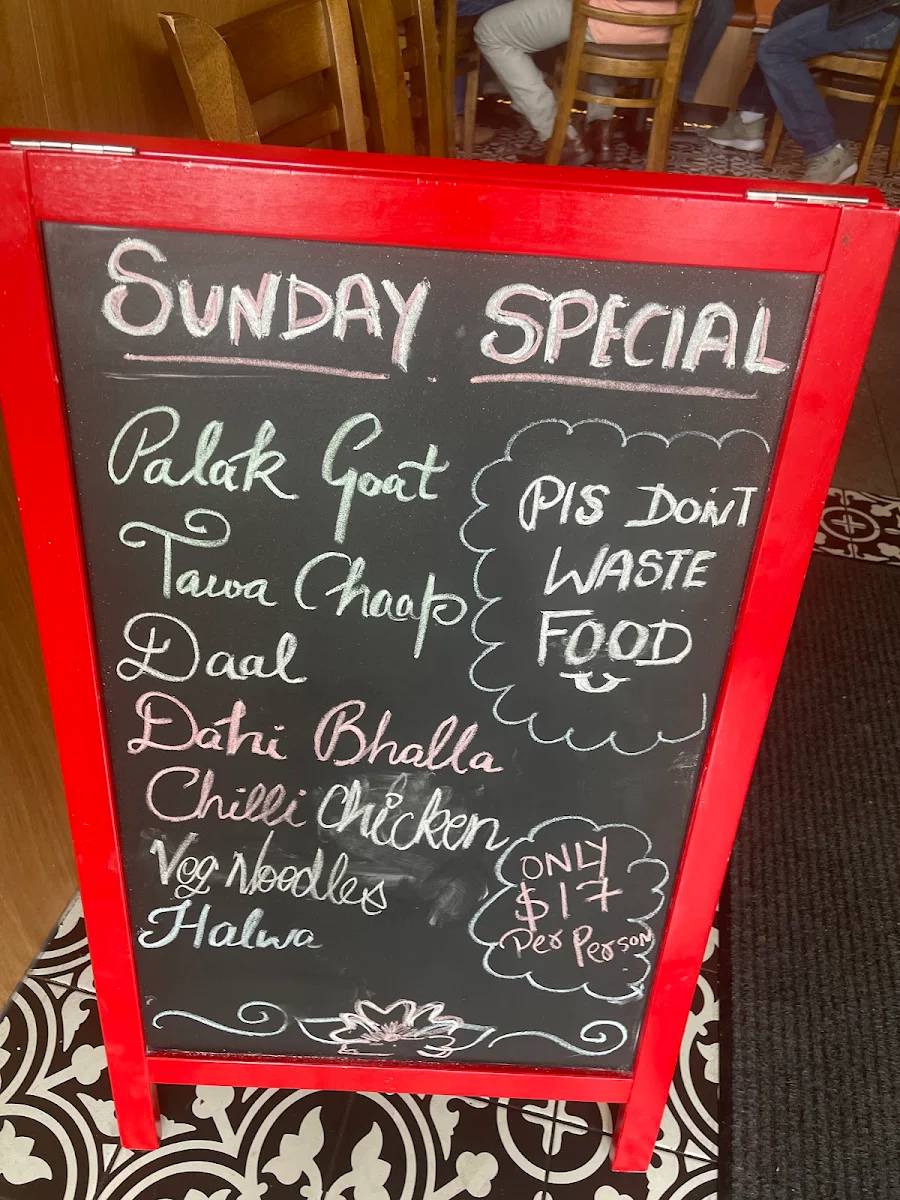 SUNDAY SPECIAL
Palak Goat
Tawa Chaap
Daal
Dahi Bhalla
Chilli Chicken
Veg Noodles
Halwa
Pls DoN'T
WASTE
FOOD
ONLY
$17
Per Person